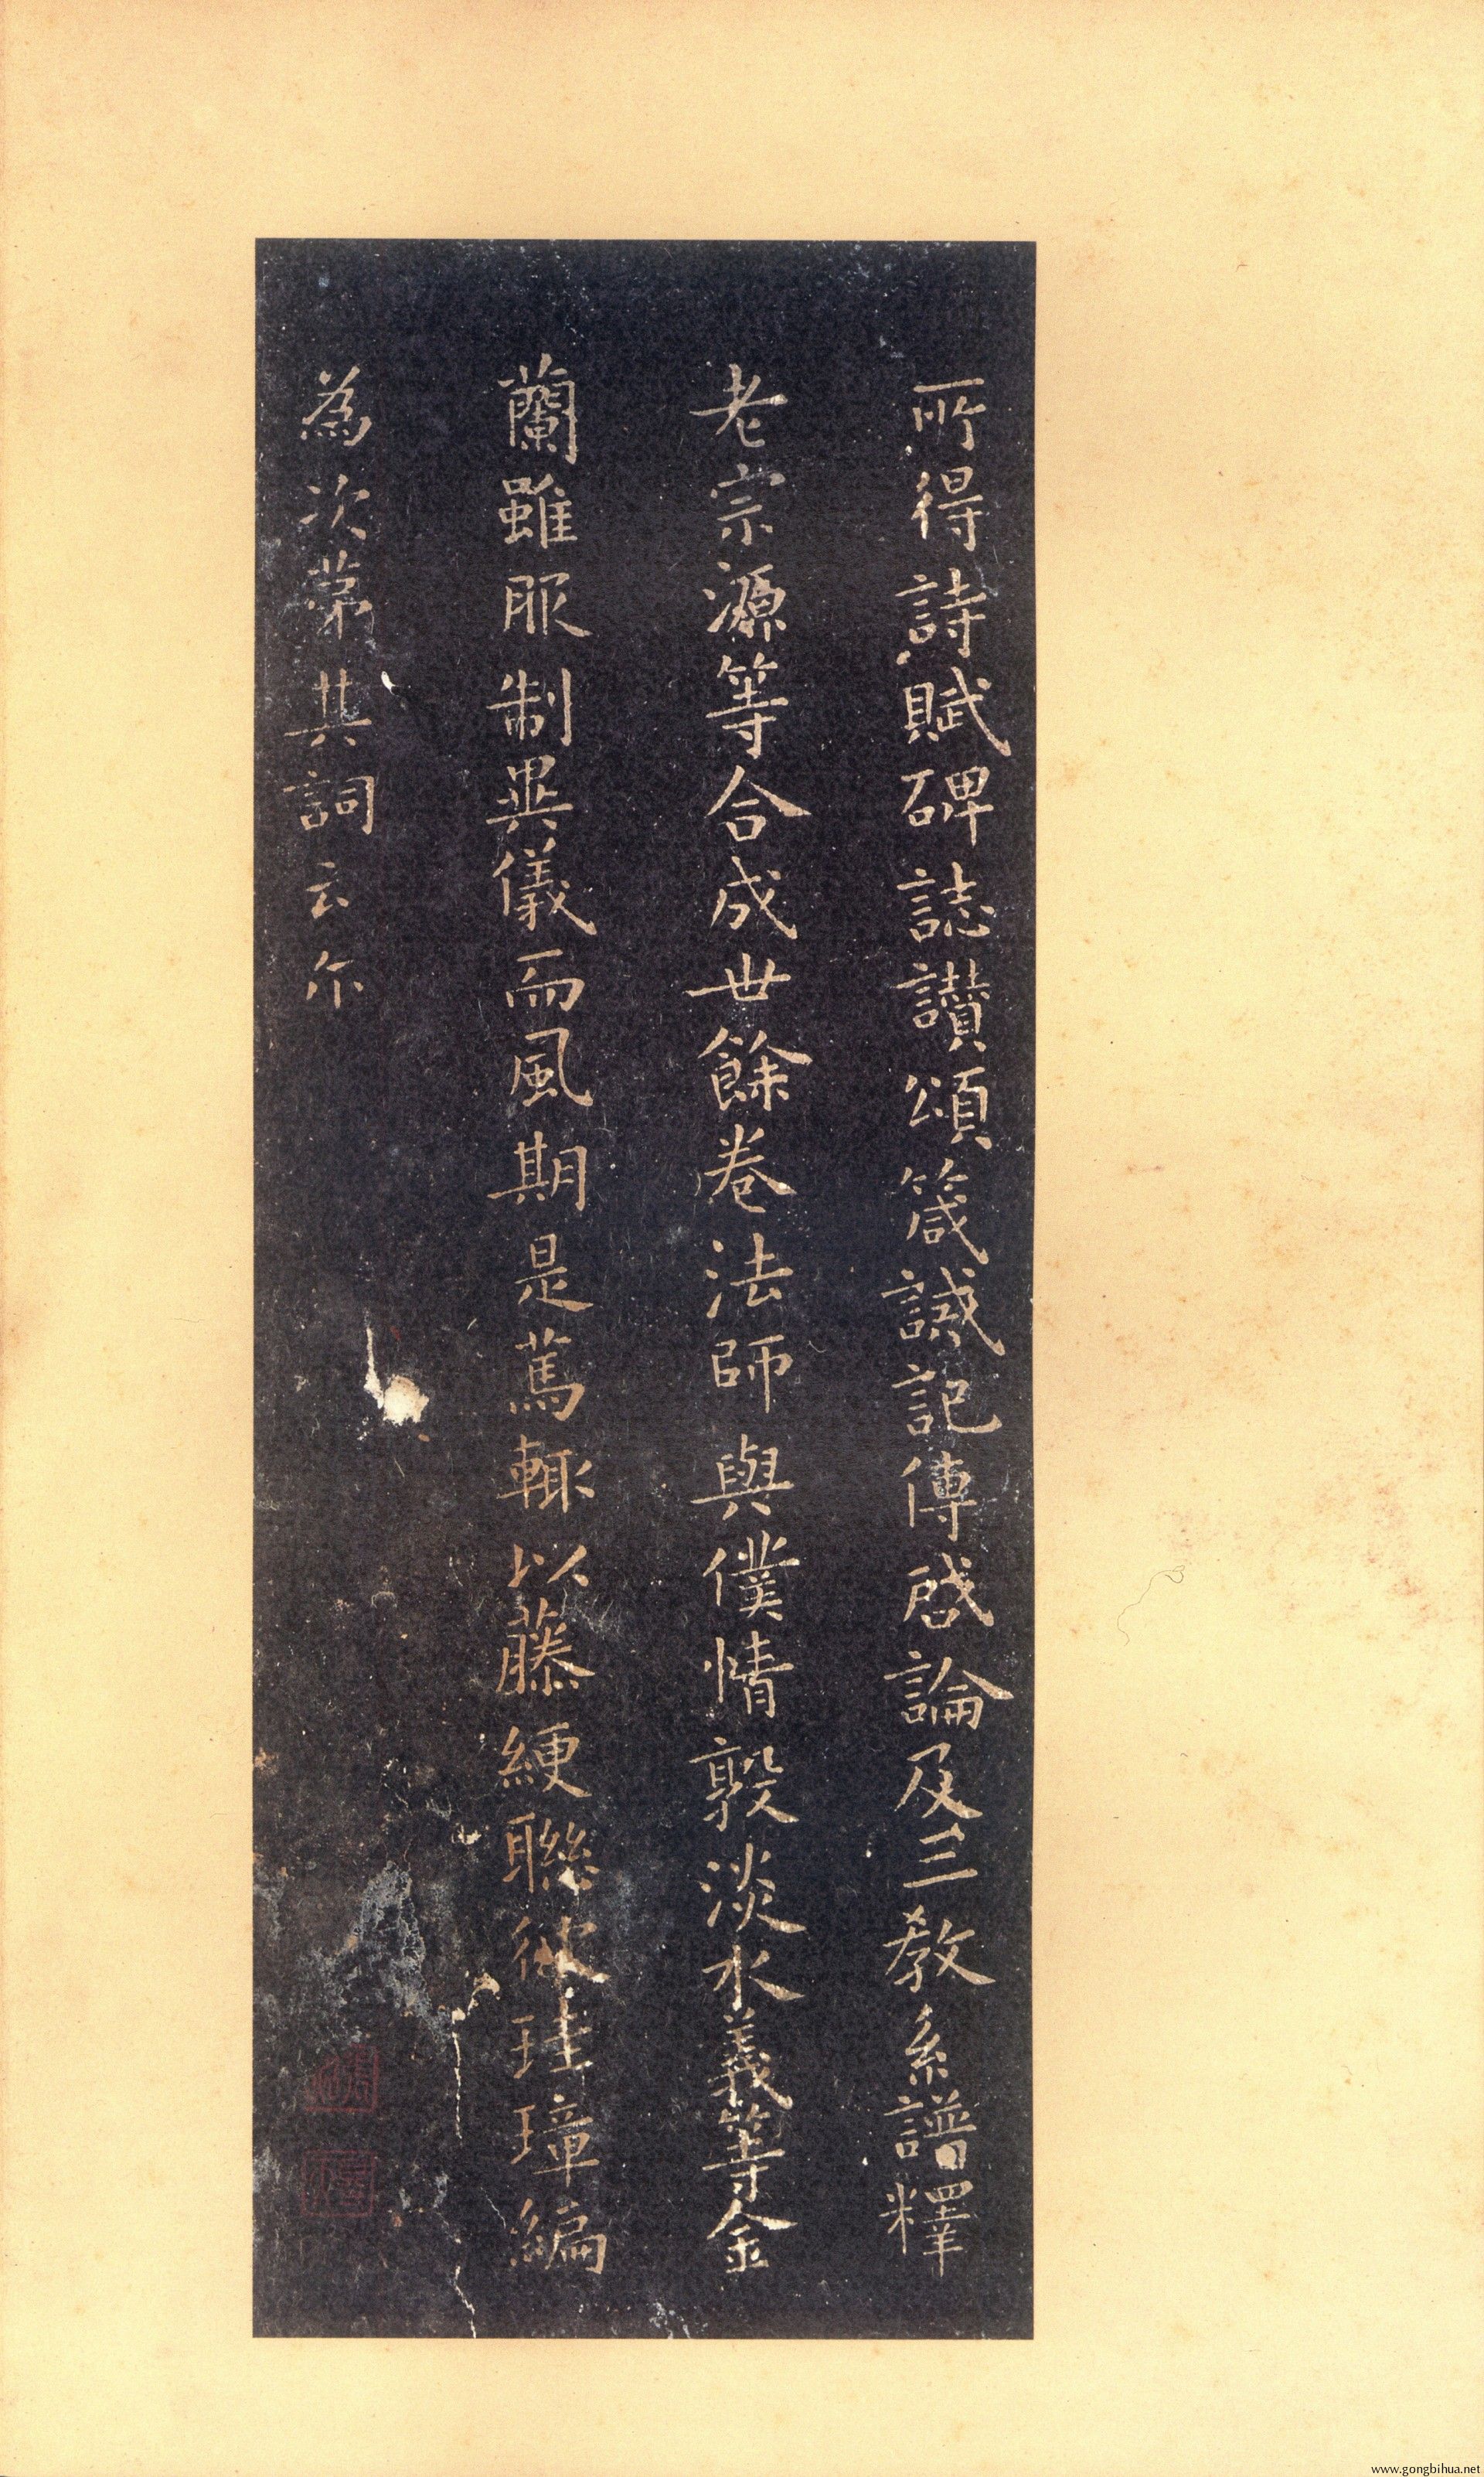 所得詩賦碑誌讃頌箴誡記傳啓論及三教系譜釋
老宗源等合成世餘卷法師與僕情敦淡水義等金
蘭雖服制異儀而風期是篤輙以藤綆聯彼珪璋編
為次苐其詞云尔
www.gongbihua.net